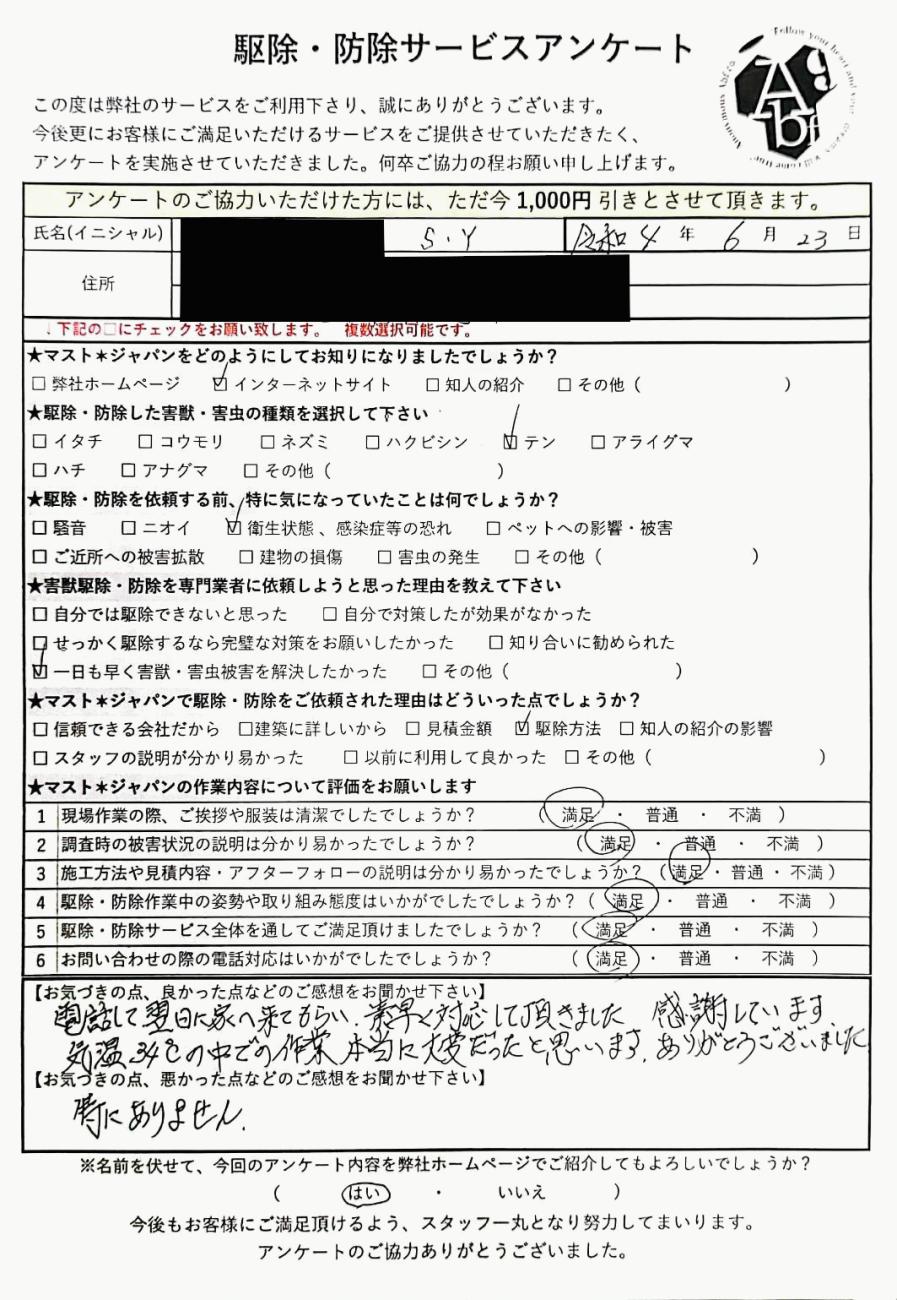 駆除・防除サービスアンケート
この度は弊社のサービスをご利用下さり、誠にありがとうございます。
今後更にお客様にご満足いただけるサービスをご提供させていただきたく、
アンケートを実施させていただきました。何卒ご協力の程お願い申し上げます。
アンケートのご協力いただけた方には、ただ今 1,000円 引きとさせて頂きます。
氏名(イニシャル) S・Y 令和 4 年 6 月 23 日
住所
↓下記の□にチェックをお願い致します。 複数選択可能です。
★マスト＊ジャパンをどのようにしてお知りになりましたでしょうか？
□ 弊社ホームページ ☑ インターネットサイト □ 知人の紹介 □ その他（ ）
★駆除・防除した害獣・害虫の種類を選択して下さい
□ イタチ □ コウモリ □ ネズミ □ ハクビシン ☑ テン □ アライグマ
□ ハチ □ アナグマ □ その他（ ）
★駆除・防除を依頼する前、特に気になっていたことは何でしょうか？
□ 騒音 □ ニオイ ☑ 衛生状態、感染症等の恐れ □ ペットへの影響・被害
□ ご近所への被害拡散 □ 建物の損傷 □ 害虫の発生 □ その他（ ）
★害獣駆除・防除を専門業者に依頼しようと思った理由を教えて下さい
□ 自分では駆除できないと思った □ 自分で対策したが効果がなかった
□ せっかく駆除するなら完璧な対策をお願いしたかった □ 知り合いに勧められた
☑ 一日も早く害獣・害虫被害を解決したかった □ その他（ ）
★マスト＊ジャパンで駆除・防除をご依頼された理由はどういった点でしょうか？
□ 信頼できる会社だから □建築に詳しいから □ 見積金額 ☑ 駆除方法 □ 知人の紹介の影響
□ スタッフの説明が分かり易かった □ 以前に利用して良かった □ その他（ ）
★マスト＊ジャパンの作業内容について評価をお願いします
1 現場作業の際、ご挨拶や服装は清潔でしたでしょうか？ （ 満足 ・ 普通 ・ 不満 ）
2 調査時の被害状況の説明は分かり易かったでしょうか？ （ 満足 ・ 普通 ・ 不満 ）
3 施工方法や見積内容・アフターフォローの説明は分かり易かったでしょうか？（ 満足・普通・不満 ）
4 駆除・防除作業中の姿勢や取り組み態度はいかがでしたでしょうか？（ 満足 ・ 普通 ・ 不満 ）
5 駆除・防除サービス全体を通してご満足頂けましたでしょうか？ （ 満足 ・ 普通 ・ 不満 ）
6 お問い合わせの際の電話対応はいかがでしたでしょうか？ （ 満足 ・ 普通 ・ 不満 ）
【お気づきの点、良かった点などのご感想をお聞かせ下さい】
電話して翌日に家へ来てもらい、素早く対応して頂きました 感謝しています。
気温34℃の中での作業 本当に大変だったと思います。ありがとうございました
【お気づきの点、悪かった点などのご感想をお聞かせ下さい】
特にありません。
※名前を伏せて、今回のアンケート内容を弊社ホームページでご紹介してもよろしいでしょうか？
（ はい ・ いいえ ）
今後もお客様にご満足頂けるよう、スタッフ一丸となり努力してまいります。
アンケートのご協力ありがとうございました。